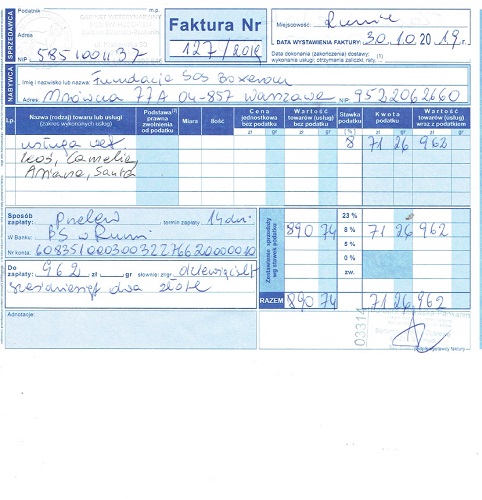 Podatnik m.p.
SPRZEDAWCA
Adres
NIP 585100 1137
Faktura Nr
127/2019
Miejscowość Rumia
DATA WYSTAWIENIA FAKTURY: 30.10.2019 r.
Data dokonania (zakończenia) dostawy/
wykonania usługi; otrzymania zaliczki, raty:
NABYWCA
Imię i nazwisko lub nazwa: Fundacja SOS Bokserom
Adres: Mrówcza 77A 04-857 Warszawa NIP 9522062660
Lp. Nazwa (rodzaj) towaru lub usługi (zakres wykonanych usług) Podstawa prawna zwolnienia od podatku Miara Ilość Cena jednostkowa bez podatku Wartość towarów (usług) bez podatku Stawka podatku Kwota podatku Wartość towarów (usług) wraz z podatkiem
zł gr zł gr % zł gr zł gr
usługa wet 8 71 26 962
Camelia,
Sposób zapłaty: Przelew termin zapłaty 14 dni
W Banku: BS w Rumi
Nr konta:
Do zapłaty: 962 zł gr słownie: zł gr dziewięćset
sześćdziesiąt dwa złote
Adnotacje:
Zestawienie sprzedaży wg stawek podatku
23 %
890 74 8 % 71 26 962
5 %
0 %
zw.
RAZEM 890 74 71 26 962
03314